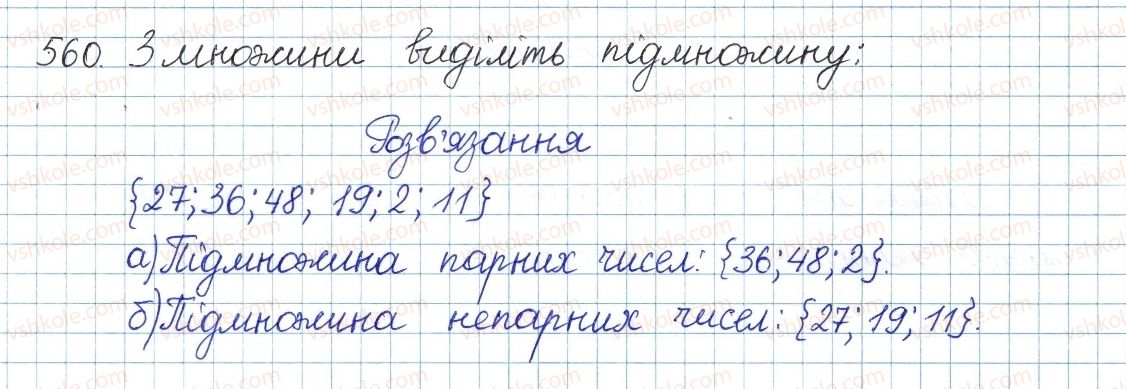 560. З множини виділіть підмножину:
Розв'язання
{27; 36; 48; 19; 2; 11}
а) Підмножина парних чисел: {36; 48; 2}.
б) Підмножина непарних чисел: {27; 19; 11}.